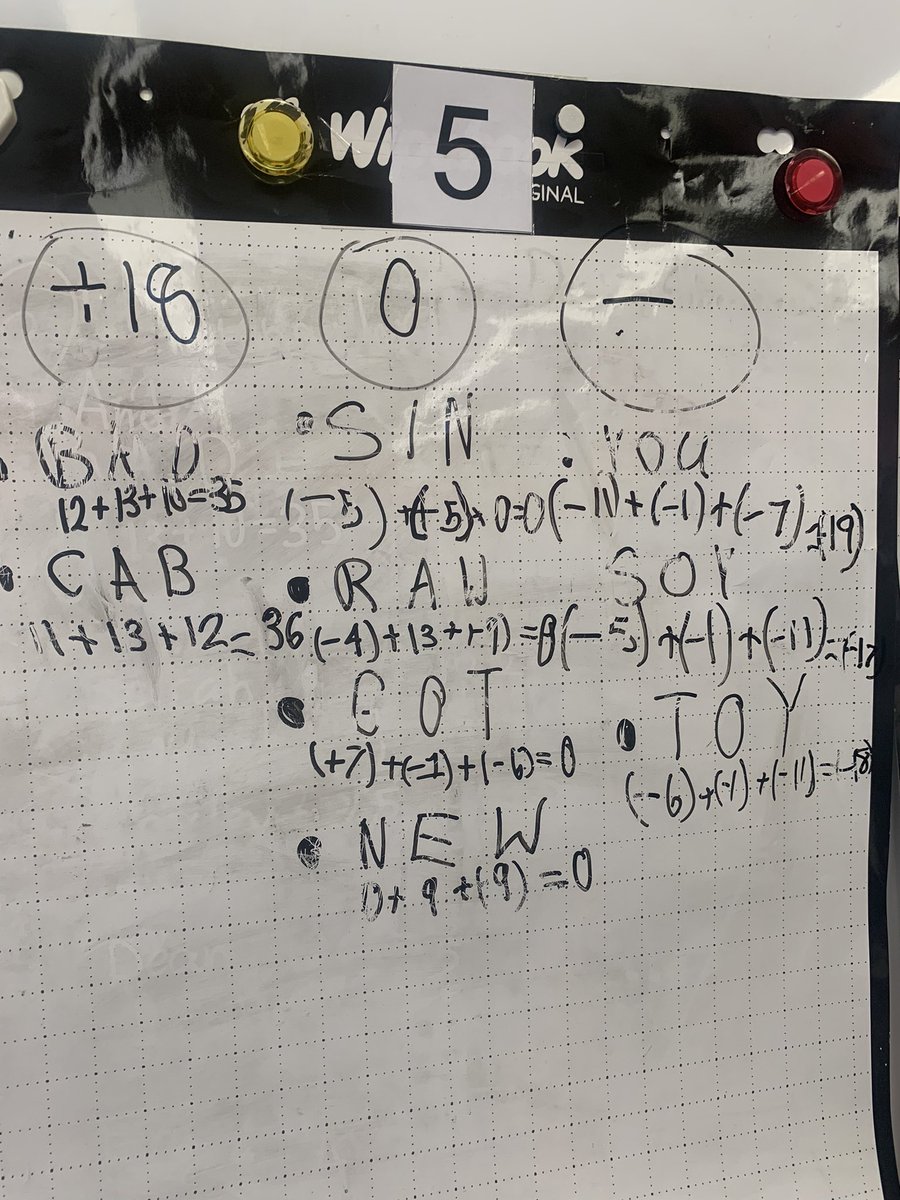 5
GINAL
+18
0
-
BAD
12+13+10=35
CAB
11+13+12=36
SIN
(-5)+(+5)+0=0
RAW
(-4)+13+(-9)=0
GOT
(+7)+(-1)+(-6)=0
NEW
0+9+(-9)=0
YOU
(-11)+(-1)+(-7)=(-19)
SOY
(-5)+(-1)+(-11)=(-17
TOY
(-6)+(-1)+(-11)=(-18)